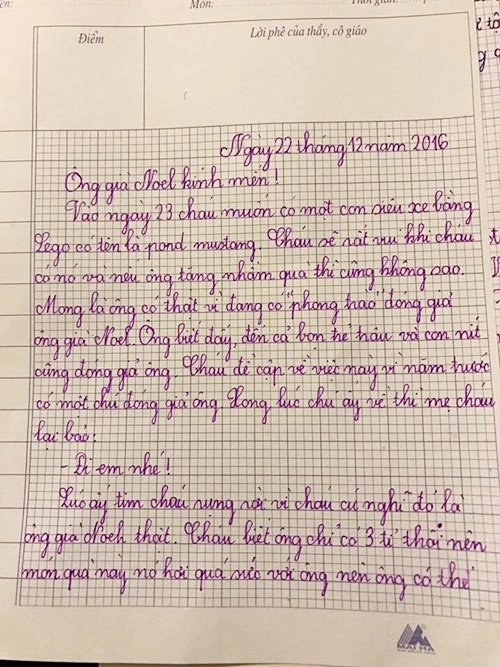 Môn:
Điểm
Lời phê của thầy, cô giáo
Ngày 22 tháng 12 năm 2016
Ông già Noel kính mến!
Vào ngày 23 cháu muốn có một con siêu xe bằng
Lego có tên là pond mustang. Cháu sẽ rất vui khi cháu
có nó và nếu ông tặng nhầm quà thì cũng không sao.
Mong là ông có thật vì đang có "phong trào" đóng giả
ông già Noel. Ông biết đấy, đến cả bọn trẻ trâu và con nít
cũng đóng giả ông. Cháu đề cập về việc này vì năm trước
có một chú đóng giả ông. Xong lúc chú ấy về thì mẹ cháu
lại bảo:
- Đi em nhé!
Lúc ấy tim cháu rụng rời vì cháu cứ nghĩ đó là
ông già Noel thật. Cháu biết ông chỉ có 3 tỉ thôi nên
món quà này nó hơi quá sức với ông nên ông có thể
MAI HÀ